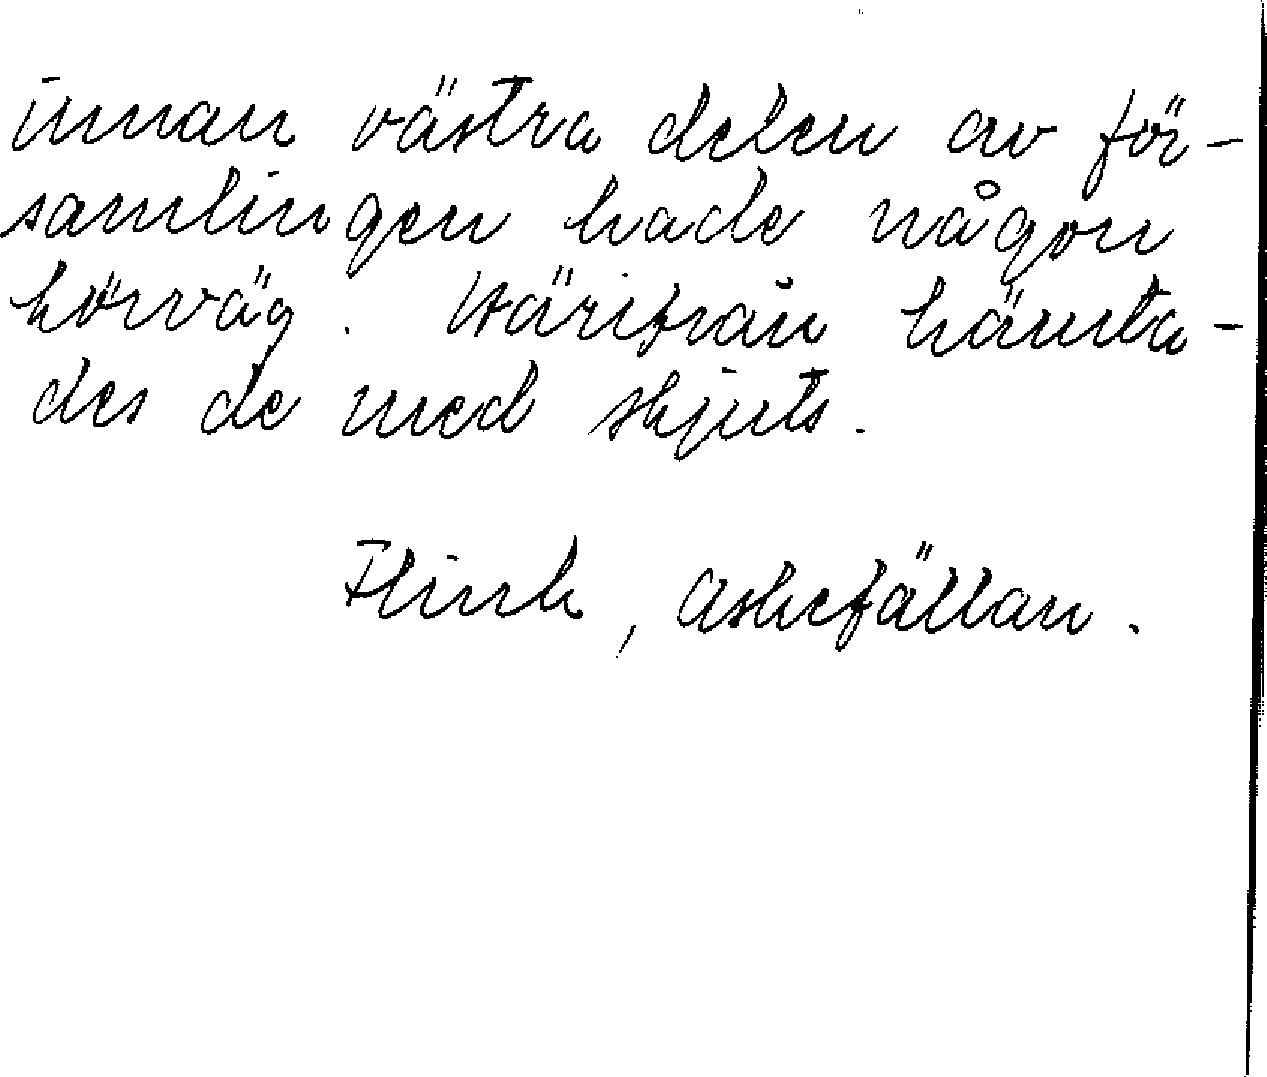 innan västra delen av för-
samlingen hade någon
körväg. Härifrån hämta-
des de med skjuts.
Flink, Askefällan.